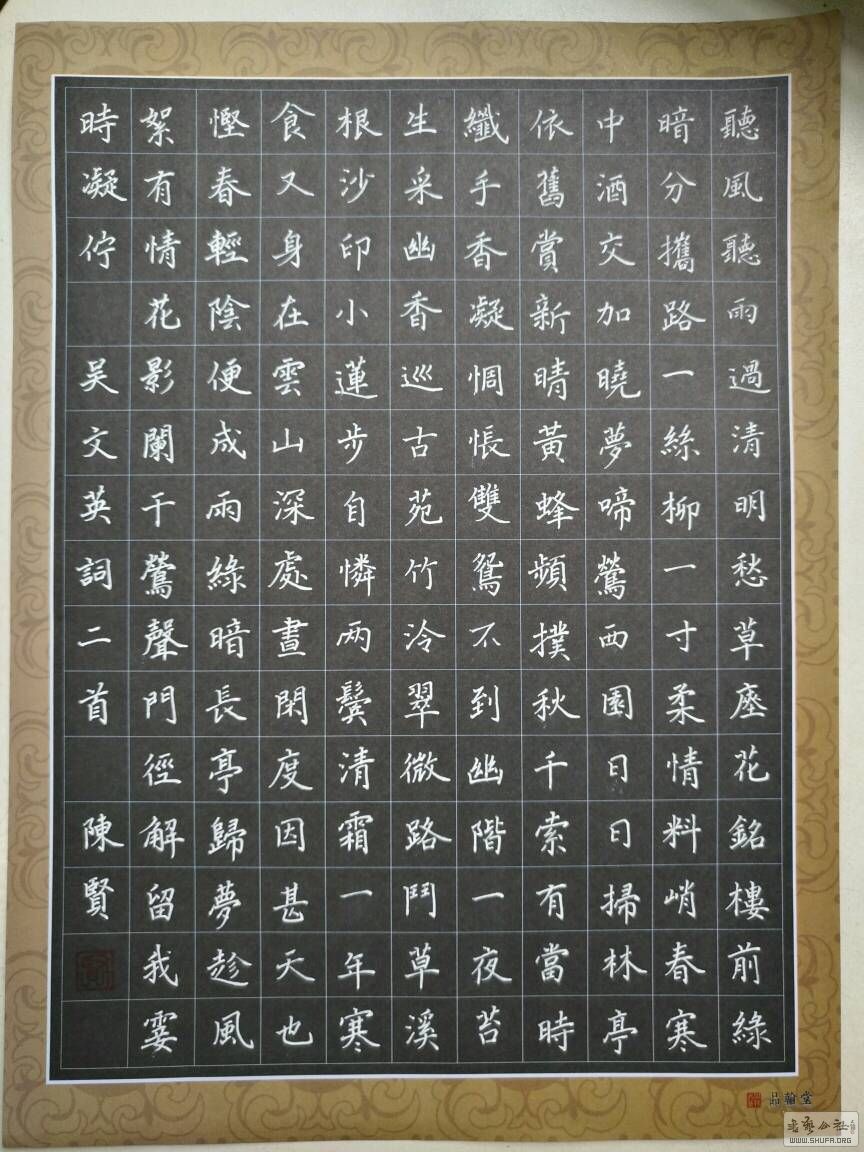 聽風聽雨過清明愁草座花銘樓前綠
暗分攜路一絲柳一寸柔情料峭春寒
中酒交加曉夢啼鶯西園日日掃林亭
依舊賞新晴黃蜂頻撲秋千索有當時
纖手香凝惆悵雙鴛不到幽階一夜苔
生采幽香巡古苑竹泠翠微路鬥草溪
根沙印小蓮步自憐两鬢清霜一年寒
食又身在雲山深處晝閑度因甚天也
慳春輕陰便成雨綠暗長亭歸夢趁風
絮有情花影闌干鶯聲門徑解留我霎
時凝佇 吴文英詞二首 陳賢
品翰堂
WWW.SHUFA.ORG